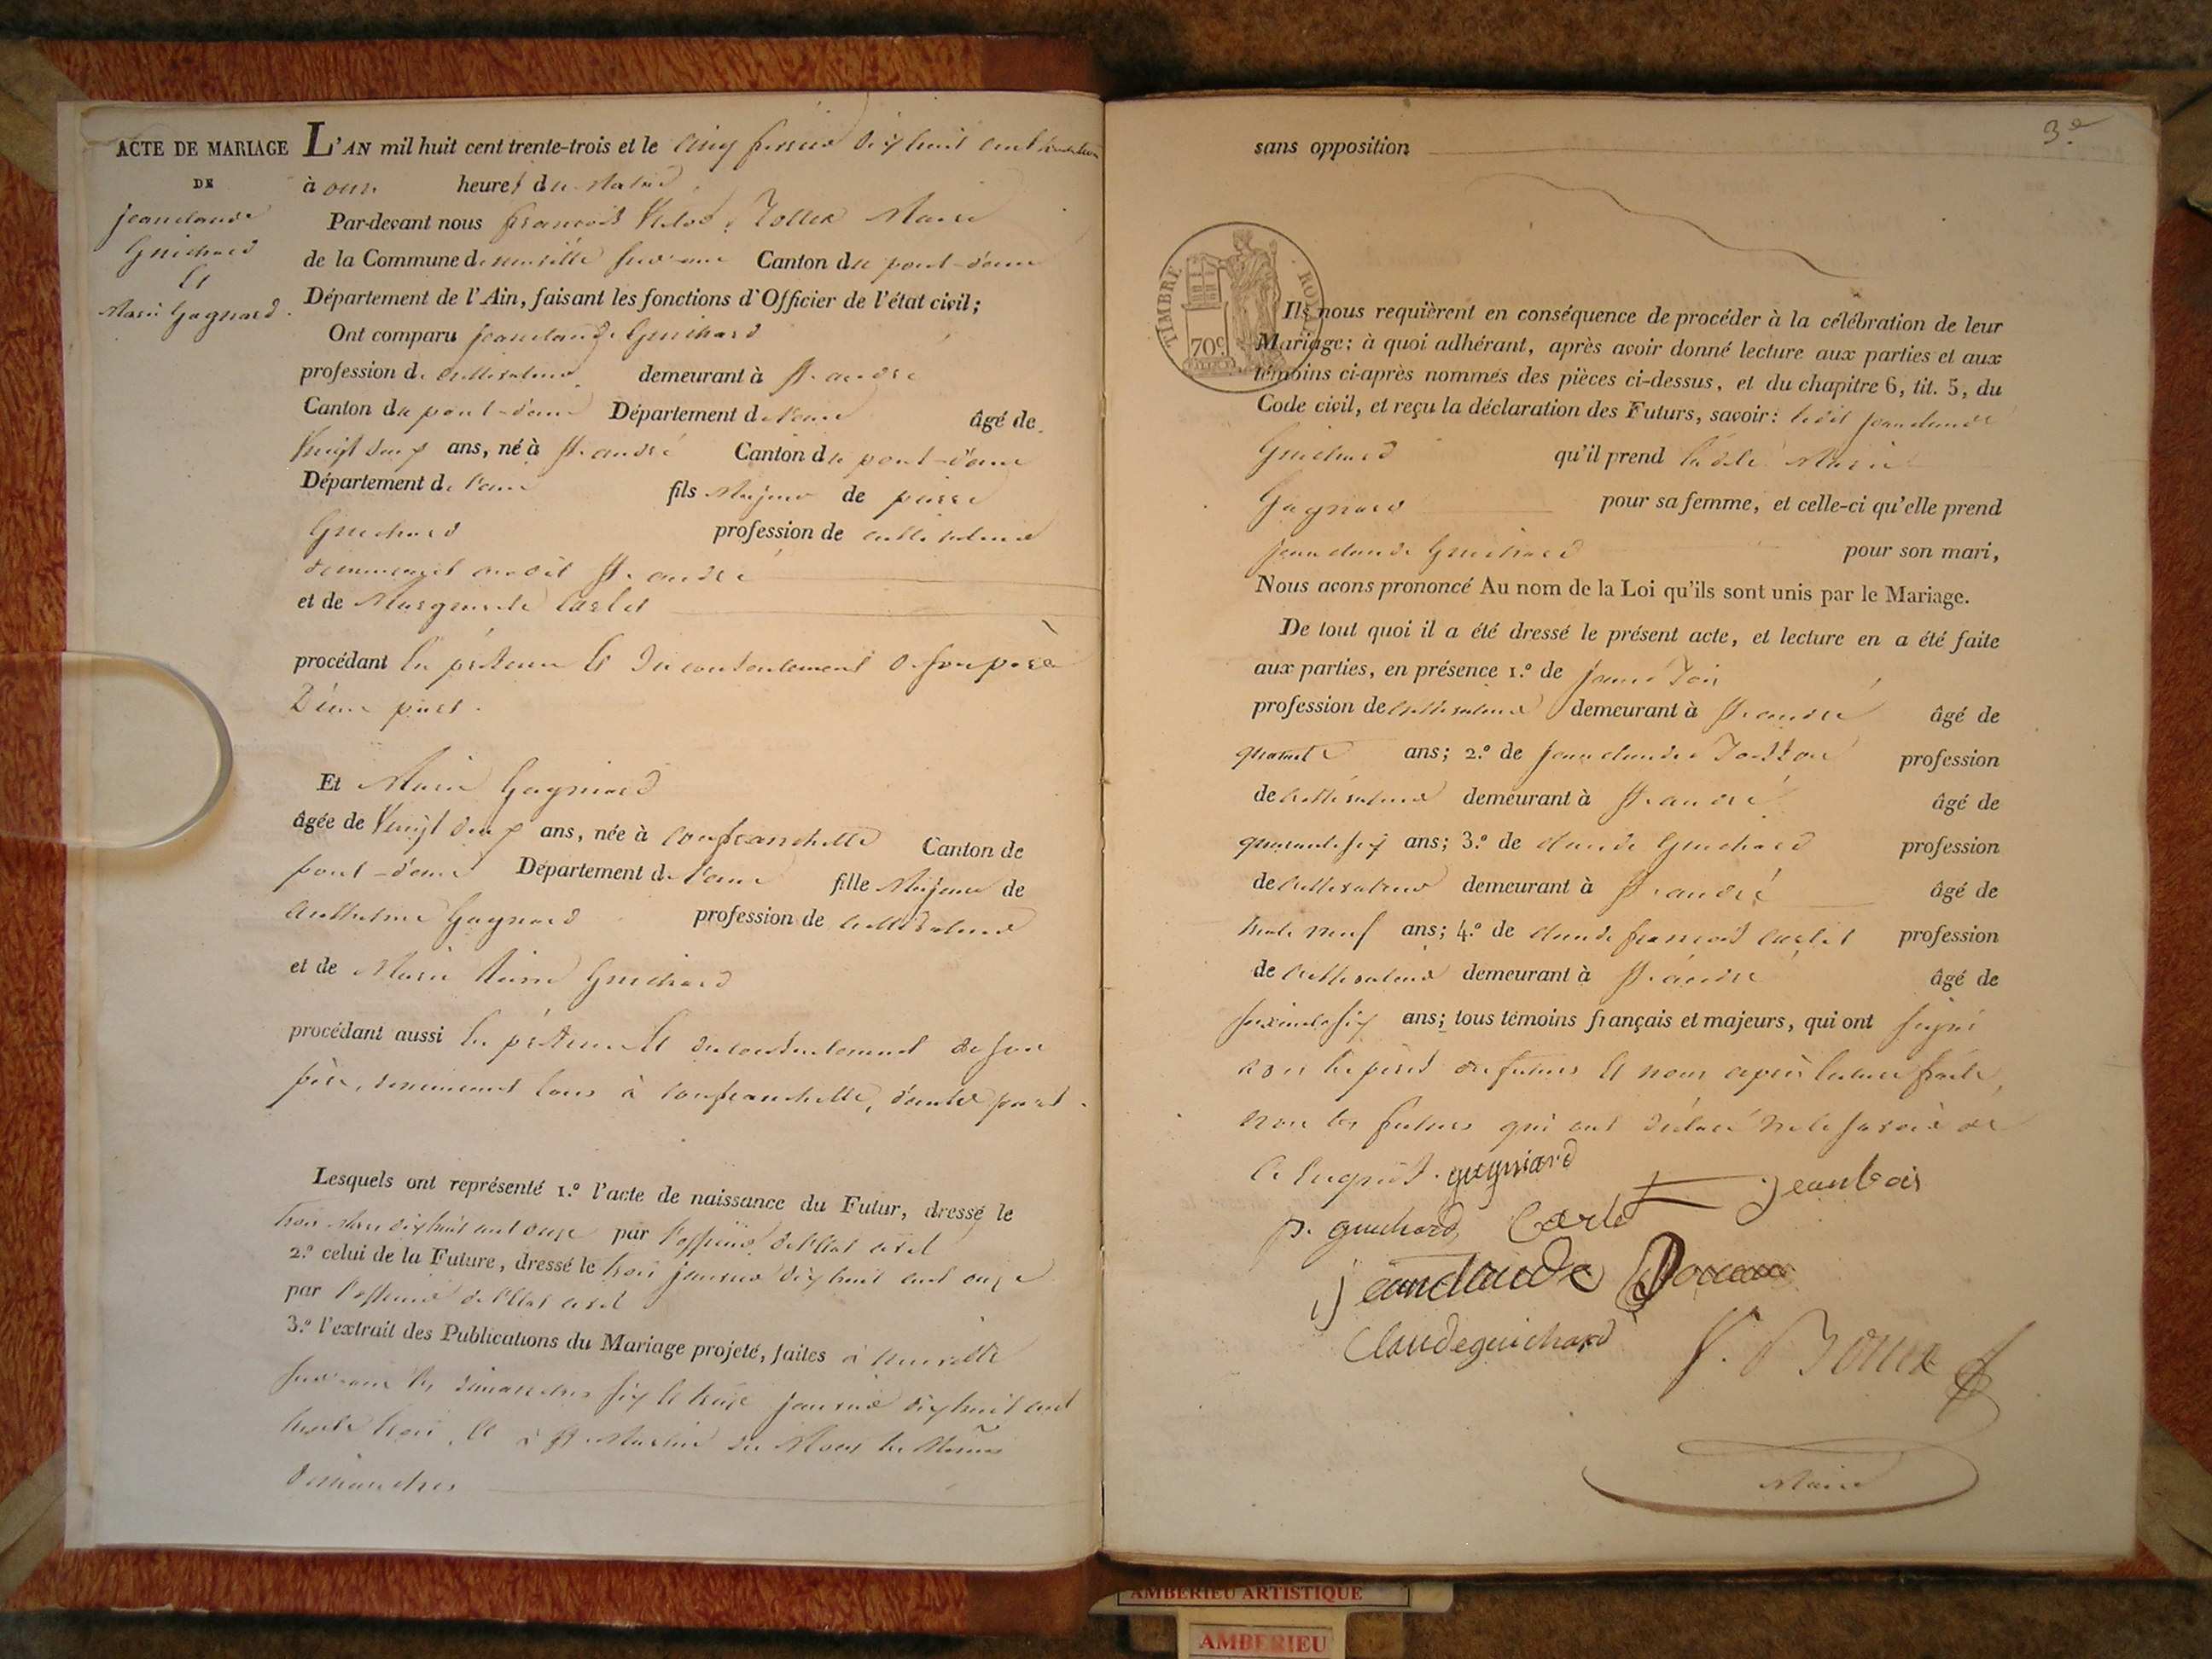 ACTE DE MARIAGE
DE
jeanclaude
Guichard
Et
Marie Gagnard.
L'AN mil huit cent trente-trois et le cinq fevrier dix huit cent trente trois
à onze heures du Matin
Par-devant nous françois Maire
de la Commune de neuville sur ain Canton du pont-d'ain
Département de l'Ain, faisant les fonctions d'Officier de l'état civil;
Ont comparu jeanclaude Guichard
profession de cultivateur demeurant à St. andré
Canton du pont-d'ain Département de l'ain âgé de
Vingt deux ans, né à St. andré Canton du pont-d'ain
Département de l'ain fils Majeur de pierre
Guichard profession de cultivateur
demeurant audit St. andré
et de Marguerite Carlet
procédant En présence Et du consentement de son père
D'une part.
Et Marie Gagniard
âgée de Vingt deux ans, née à Confranchette Canton de
pont-d'ain Département de l'ain fille Majeure de
anthelme Gagnard profession de cultivateur
et de Marie Guichard
procédant aussi En présence Et du consentement de son
père, demeurant tous à Confranchette, d'autre part.
Lesquels ont représenté 1.º l'acte de naissance du Futur, dressé le
trois Mars dix huit cent onze par l'officier de l'Etat civil
2.º celui de la Future, dressé le trois janvier dix huit cent onze
par l'officier de l'Etat civil
3.º l'extrait des Publications du Mariage projeté, faites à neuville
sur ain les dimanches six Et treize janvier dix huit cent
trente trois, Et à St. Martin du Mont les Mêmes
dimanches
3e
sans opposition
TIMBRE ROYAL
70c
Ils nous requièrent en conséquence de procéder à la célébration de leur
Mariage; à quoi adhérant, après avoir donné lecture aux parties et aux
témoins ci-après nommés des pièces ci-dessus, et du chapitre 6, tit. 5, du
Code civil, et reçu la déclaration des Futurs, savoir: ledit jeanclaude
Guichard qu'il prend ladite Marie
Gagnard pour sa femme, et celle-ci qu'elle prend
jeanclaude Guichard pour son mari,
Nous avons prononcé Au nom de la Loi qu'ils sont unis par le Mariage.
De tout quoi il a été dressé le présent acte, et lecture en a été faite
aux parties, en présence 1.º de
profession de cultivateur demeurant à St. andré âgé de
quarante ans; 2.º de jeanclaude profession
de cultivateur demeurant à St. andré âgé de
quarante six ans; 3.º de claude Guichard profession
de cultivateur demeurant à St. andré âgé de
trente neuf ans; 4.º de claude françois Carlet profession
de cultivateur demeurant à St. andré âgé de
soixante six ans; tous témoins français et majeurs, qui ont signé
avec les pères des futurs Et nous après lecture faite,
non les futurs qui ont déclaré ne le savoir de
ce Enquis. gagniard
jeanbois
p. guichard Carlet
jeanclaude
Claudeguichard
Maire
AMBERIEU ARTISTIQUE
AMBERIEU